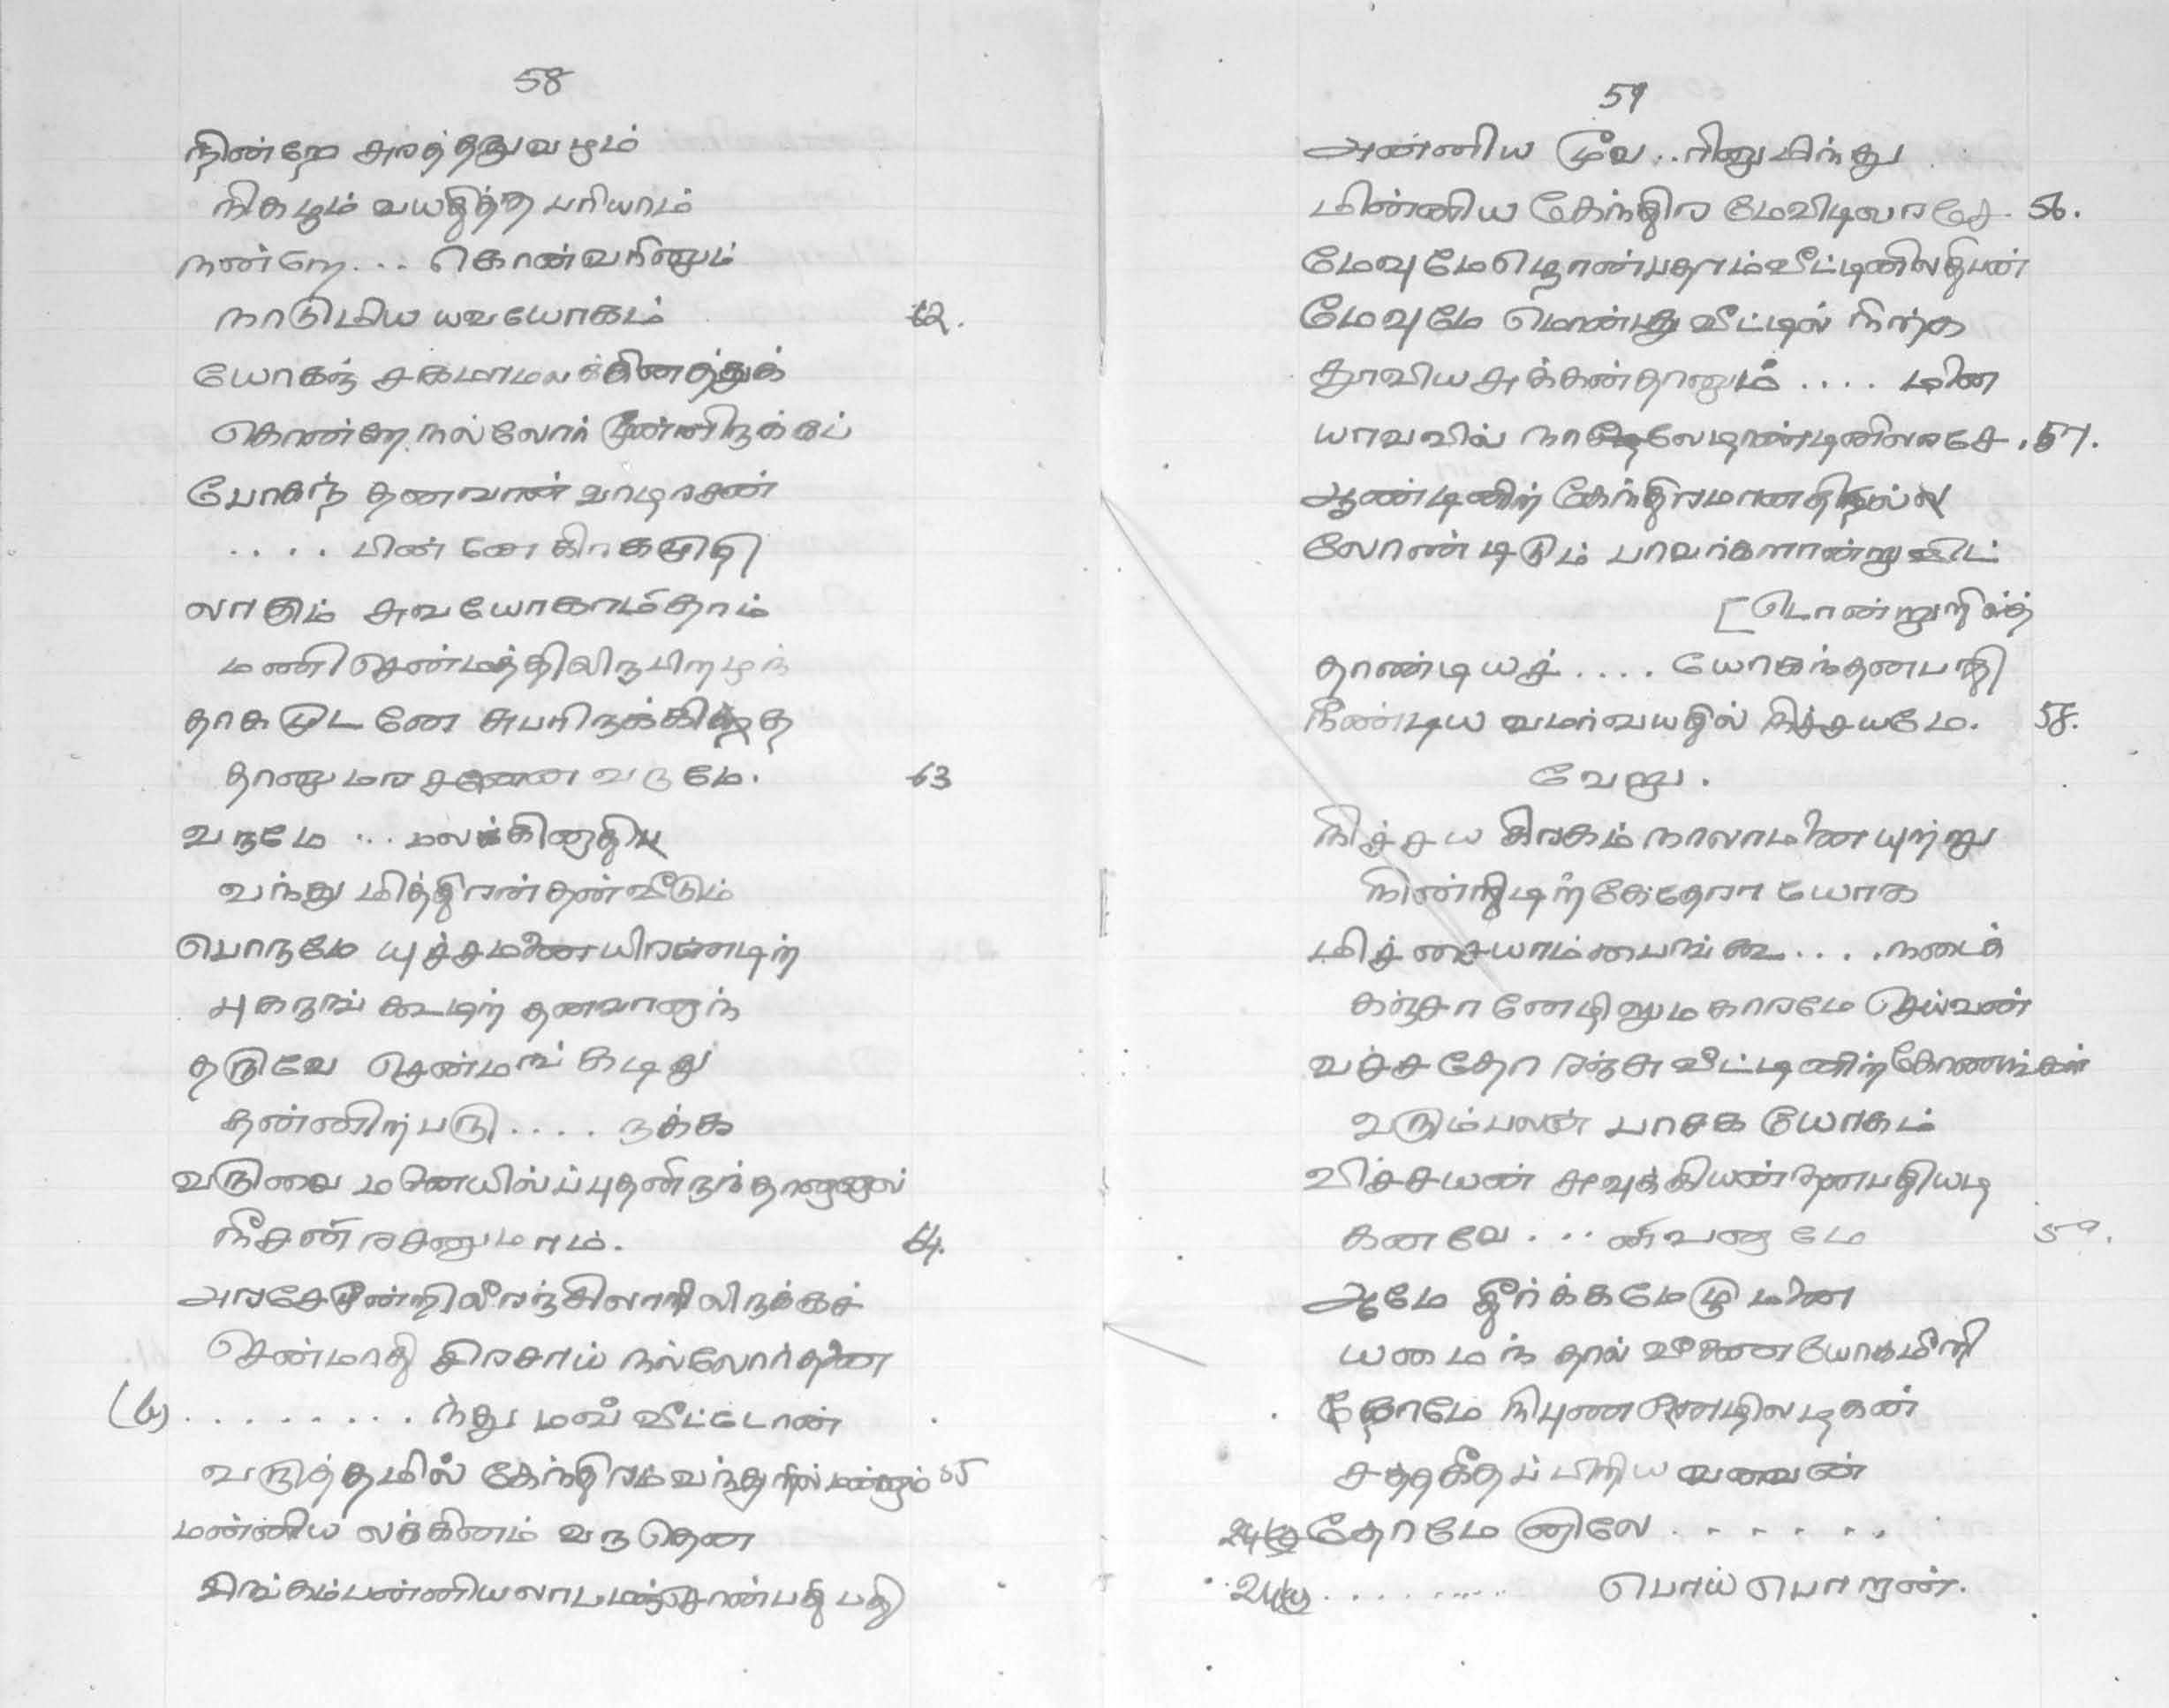 58
நின்றே அரத்தநுவமும்
நிகழும் வயதித்த பரியாம்
நன்றே... கொண்வரினும்
நாடுமிய யவயோகம் 62.
யோகந் சகமாமலக்கினத்துக்
கொன்றே நல்லோர் முன்னிருக்கப்
போகந் தனவான் வாழரசன்
.... பின் னே கிரகமுதி
லாகும் அவயோகாம்தாம்
மணி சென்மத்திலிருபிறழந்
தாகமுடனே சுபரிருக்கி
தானுமரசனென வருமே. 63
வருமே ... மலக்கினாதிய
வந்து மித்திரன்தன்வீடும்
பொருமே யுச்சமனையிராண்டிற்
புகருங் கூடிற் தனவானுந்
தருவே சென்மங் கடிது
தன்னிற்பரு .... நக்க
வருவை மனையில்ப்புதனிருந்தானானால்
நீசன் ரசனுமாம். 64.
அரசே மூன்றிலீரந்கிலாறிலிருக்கச்
சென்மாதி திரசாய் நல்லோர்தனை
......... ந்து மவ் வீட்டோன்
வருத்தமில் கேந்திரம்வந்து 65
மன்னிய லக்கினம் வருதென
சிங்கம்பன்னியலாபமஞ்சொண்பதி பதி
59
அன்னிய மூவ..ரினுமிந்து
மின்னிய கேந்திர மேவிடிலரசே. 56.
மேவுமேழொன்பதாம்வீட்டினிலதிபன்
மேவுமே மொன்பது வீட்டில் நின்ற
தூவியஅக்கன்தானும் .... மின
யாவலில் நாலேழாண்டினிலரசே. 57.
ஆண்டினிற் கேந்திரமானதினல்ல
லோண்டிடும் பாவர்களான்றுவிட்
[டொன்றுநில்த்
தாண்டியச் .... யோகந்தனபதி
நீண்டிய வமர்வயதில் நிச்சயமே. 58.
வேறு.
நிச்சய கிரகம் நாலாமனையுற்று
நின்றிடிற் கேதாரா யோக
மிச்சையாம்பைங்கூ .... நடைக்
கஞ்சா னேழினுமகாரமே செய்வன்
வச்சதோ ரஞ்சு வீட்டினிற்கோணங்கள்
வரும்பலன் பாசக யோகம்
விச்சயன் சுவுக்கியன் தனபதியடி
கனவே ... னிவனாமே 59.
ஆமே தீர்க்கமேழு மனை
யமைந்தால் வீணை யோகமீறி
நாமே நிபுண னெழிலழகன்
சத்தகீதப் பிரிய வனவன்
தோமே னிலே .......
........ பொய் பொறன்.